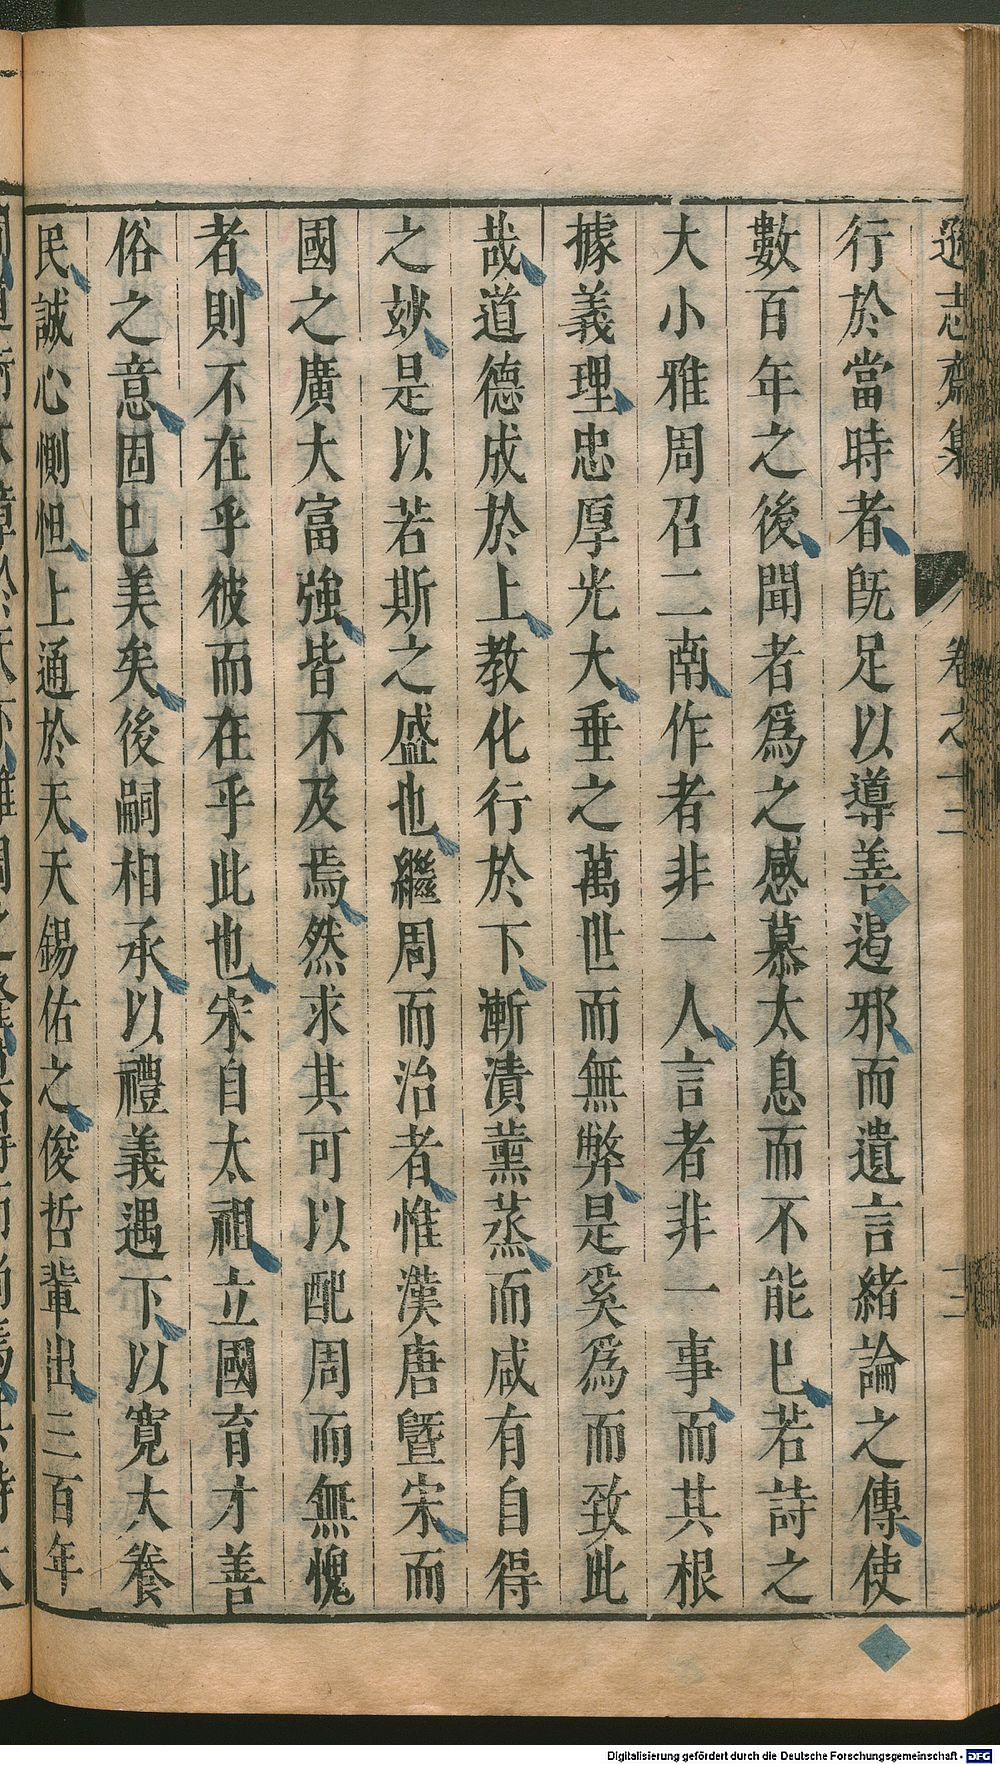 遜志齋集 卷之十二 十三
行於當時者旣足以導善遏邪而遺言緒論之傳使
數百年之後聞者爲之感慕太息而不能已若詩之
大小雅周召二南作者非一人言者非一事而其根
據義理忠厚光大垂之萬世而無弊是奚爲而致此
哉道德成於上教化行於下漸漬薰蒸而咸有自得
之妙是以若斯之盛也繼周而治者惟漢唐曁宋而
國之廣大富強皆不及焉然求其可以配周而無愧
者則不在乎彼而在乎此也宋自太祖立國育才善
俗之意固已美矣後嗣相承以禮義遇下以寬大養
民誠心惻怛上通於天天錫佑之俊哲輩出三百年
Digitalisierung gefördert durch die Deutsche Forschungsgemeinschaft - DFG